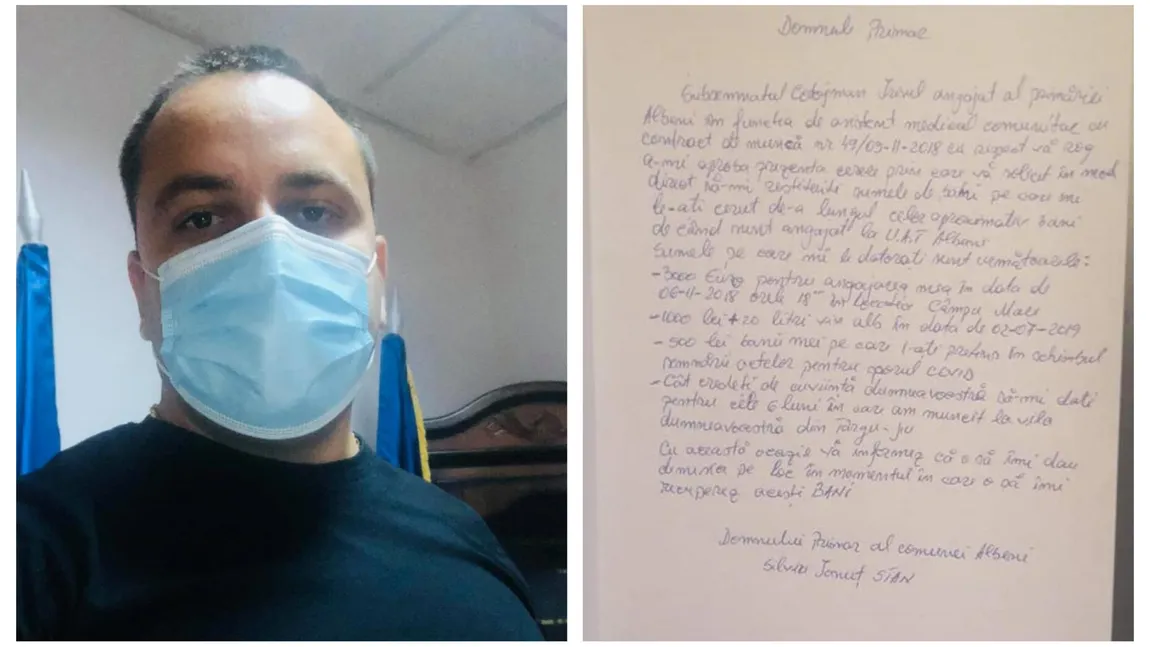 Domnule Primar
Subsemnatul Cotojman Ionel angajat al primăriei
Albeni în funcția de asistent medical comunitar cu
contract de muncă nr 49/09-11-2018 cu respect vă rog
a-mi aproba prezenta cerere prin care vă solicit în mod
direct să-mi restituiți sumele de bani pe care mi
le-ați cerut de-a lungul celor aproximativ bani
de când sunt angajat la U.A.T Albeni
Sumele pe care mi le datorați sunt următoarele:
-3000 Euro pentru angajarea mea în data de
06-11-2018 orele 18 în locația Câmpu Mare
-1000 lei + 20 litri vin alb în data de 02-07-2019
- 500 lei banii mei pe care i-ați pretins în schimbul
semnării actelor pentru sporul covid
- Cât credeți de cuviință dumneavoastră să-mi dați
pentru cele 6 luni în care am muncit la vila
dumneavoastră din Târgu-Jiu
Cu această ocazie vă informez că o să îmi dau
demisia pe loc în momentul în care o să îmi
recuperez acești BANI
Domnului Primar al comunei Albeni
Silviu Ionuț STAN